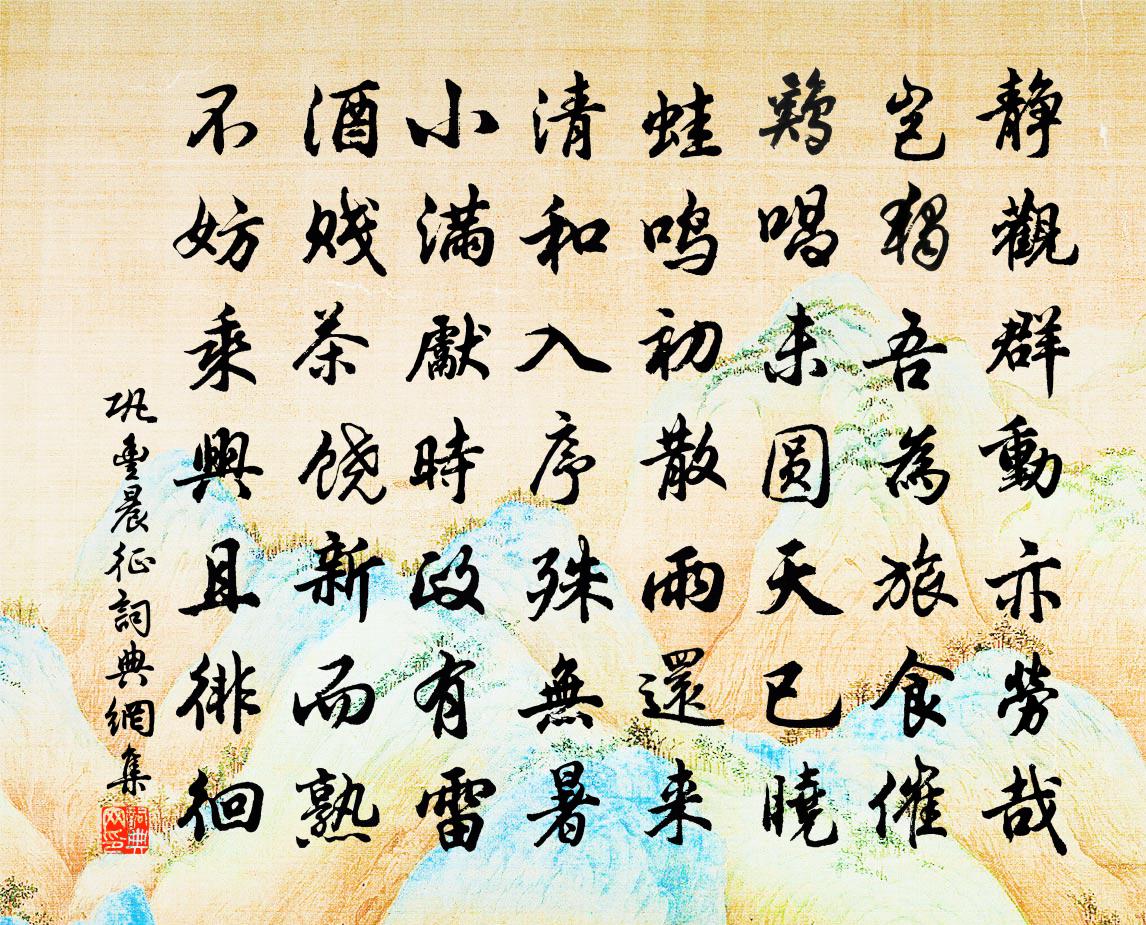 静觀群動亦勞哉
豈獨吾為旅食催
鷄唱未圓天已曉
蛙鸣初散雨還来
清和入序殊無暑
小滿獻時政有雷
酒贱茶饶新而熟
不妨乘興且徘徊
巩豐晨征詞典網集
詞典网印